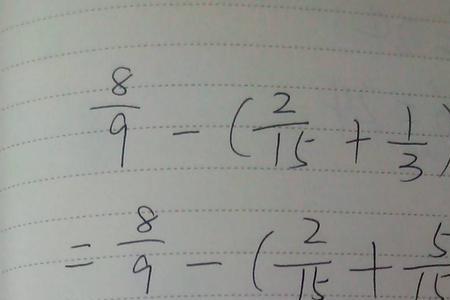 8/9 - (2/15 + 1/3)
= 8/9 - (2/15 + 5/15